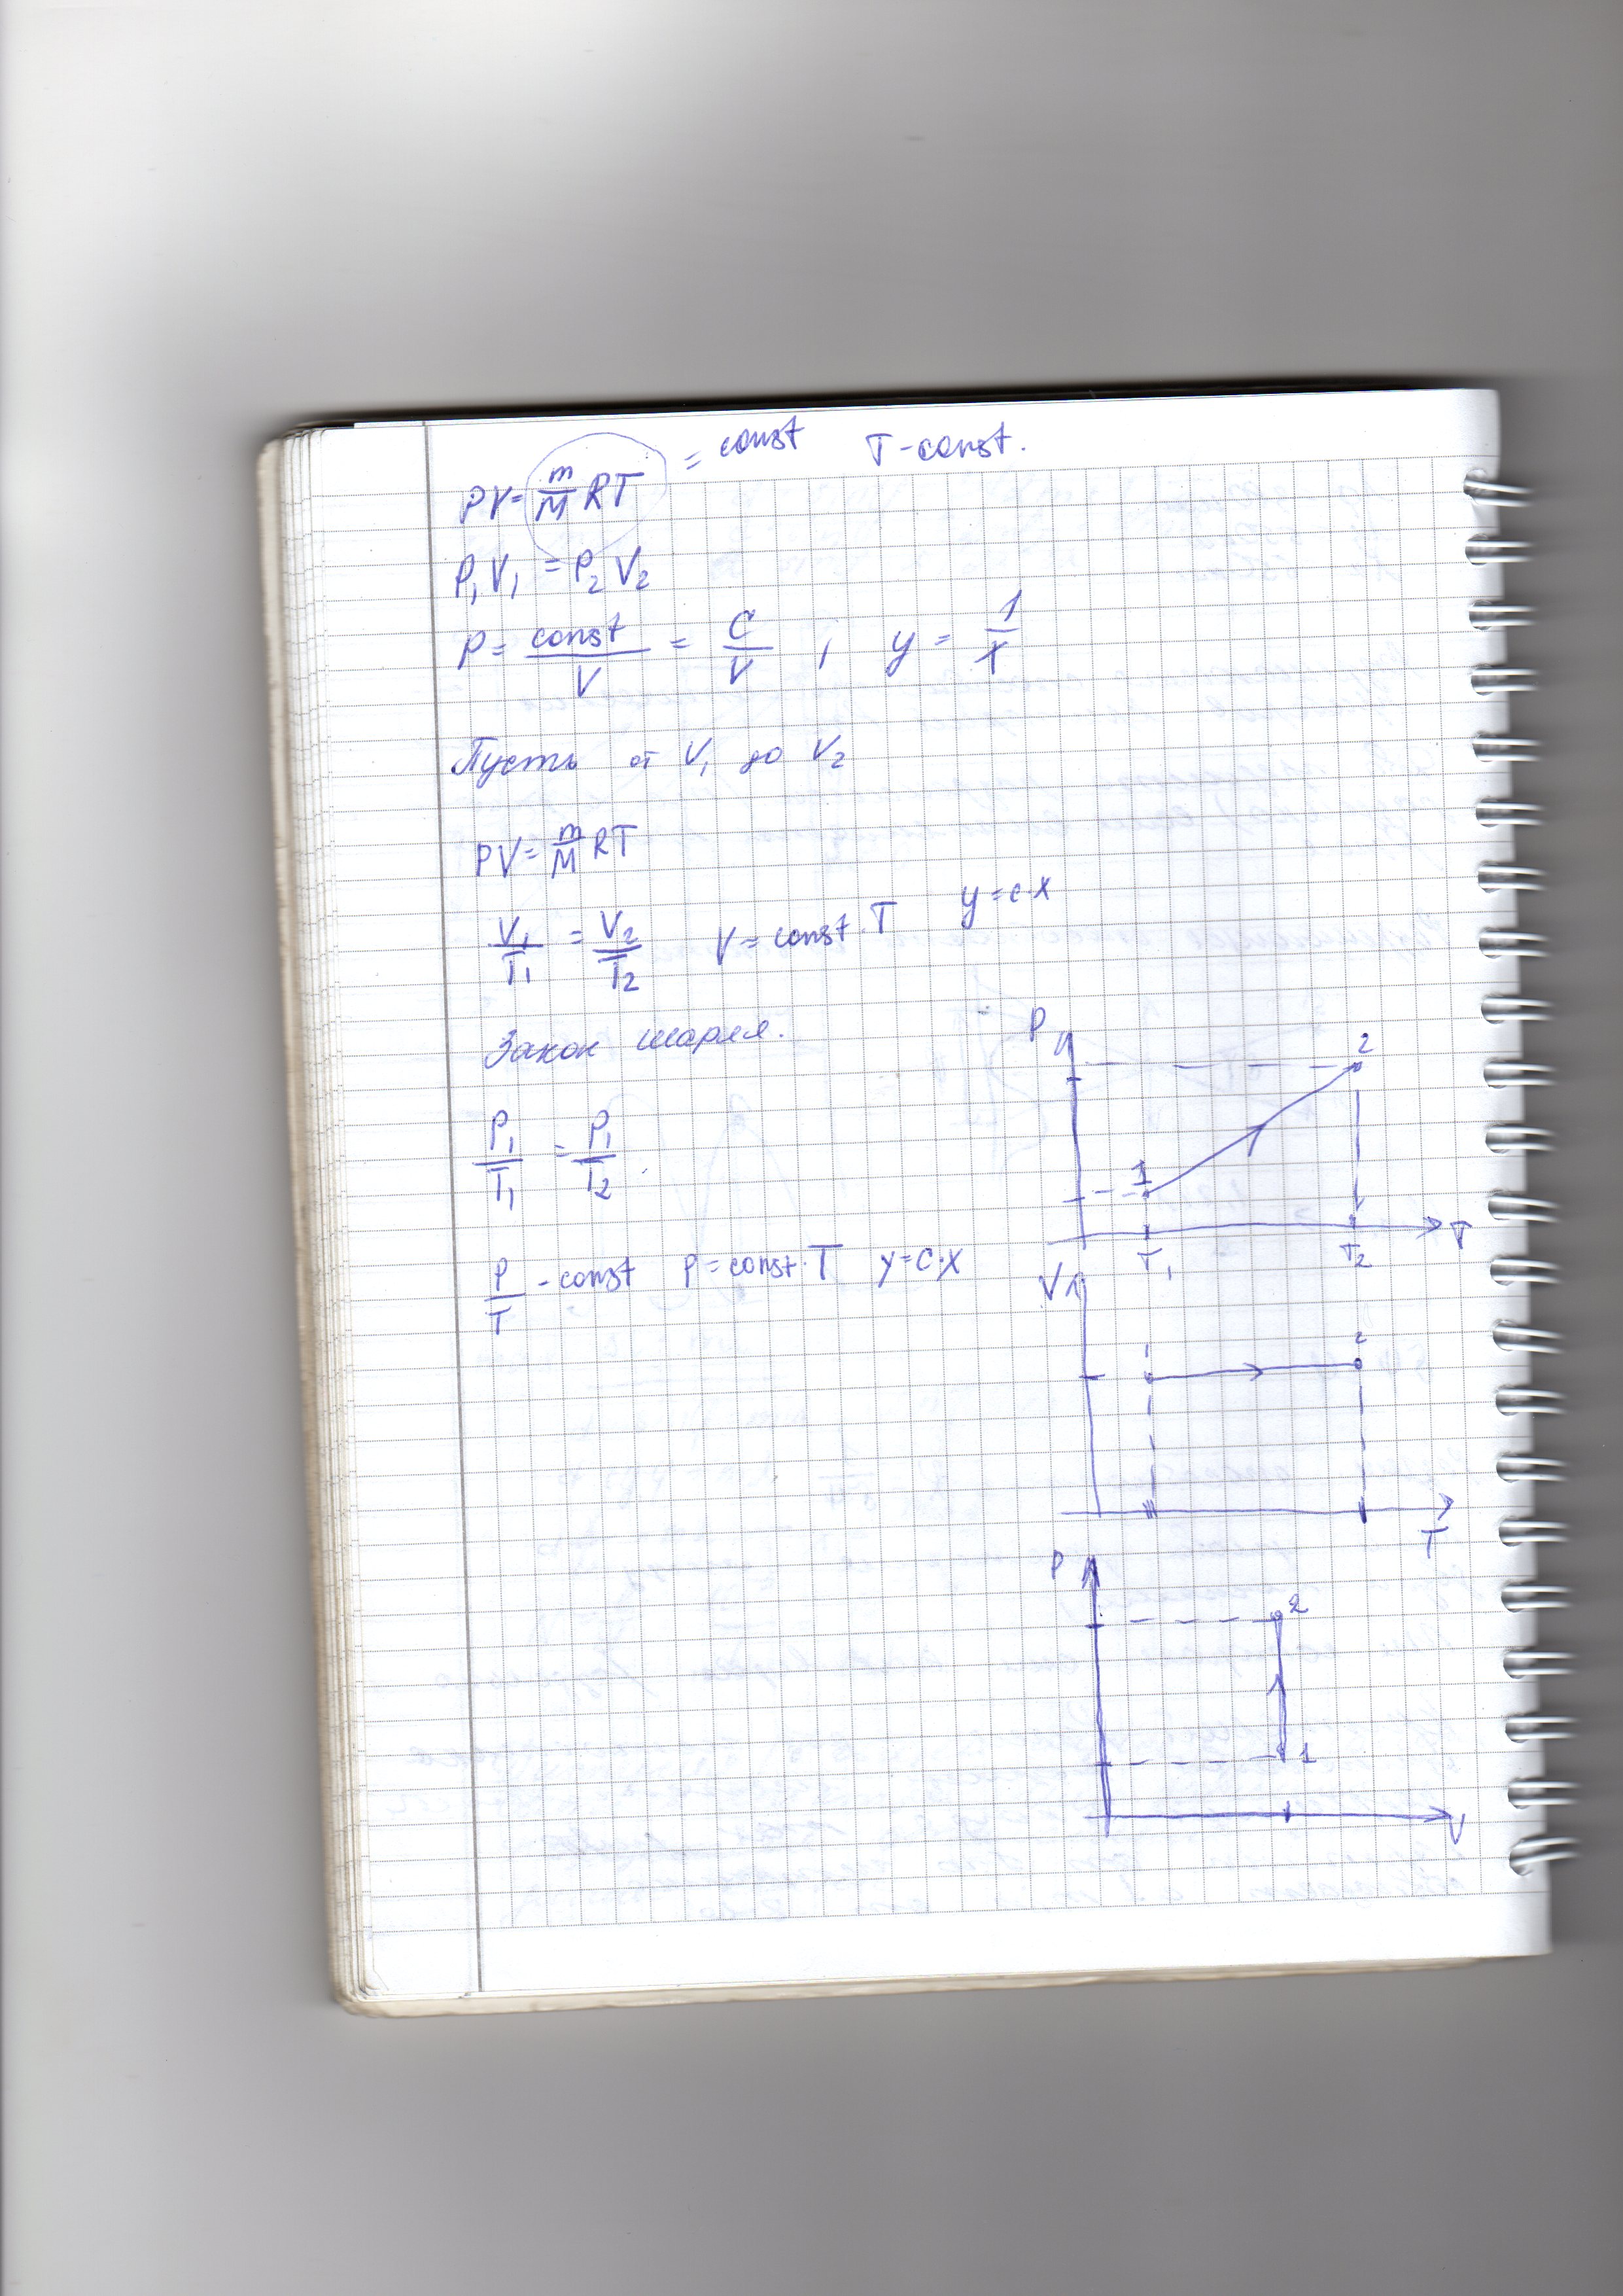 PV = m/M RT = const T - const.
P₁V₁ = P₂V₂
P = const/V = C/V , y = 1/x
Пусть от V₁ до V₂
PV = m/M RT
V₁/T₁ = V₂/T₂ V = const · T y = c·x
Закон шарля.
P₁/T₁ = P₁/T₂
P/T - const P = const · T y = c·x
P
2
1
T₁ T₂ T
V
2
T
P
2
1
V